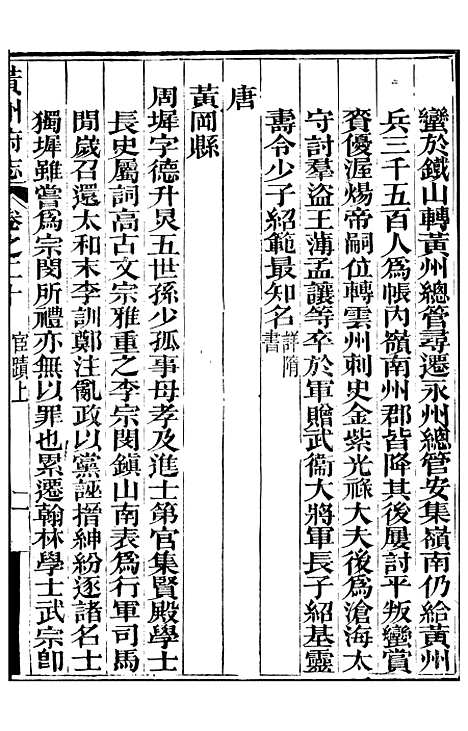 蠻於鐵山轉黃州總管尋遷永州總管安集嶺南仍給黃州
兵三千五百人爲帳內嶺南州郡皆降其後屢討平叛蠻賞
賚優渥煬帝嗣位轉雲州刺史金紫光祿大夫後爲滄海太
守討羣盜王薄孟讓等卒於軍贈武衞大將軍長子紹基靈
壽令少子紹範最知名詳隋書
唐
黃岡縣
周墀字德升炅五世孫少孤事母孝及進士第官集賢殿學士
長史屬詞高古文宗雅重之李宗閔鎮山南表爲行軍司馬
閱歲召還太和末李訓鄭注亂政以黨誣搢紳紛逐諸名士
獨墀雖嘗爲宗閔所禮亦無以罪也累遷翰林學士武宗卽
黃州府志
卷之二十
宦蹟上
二